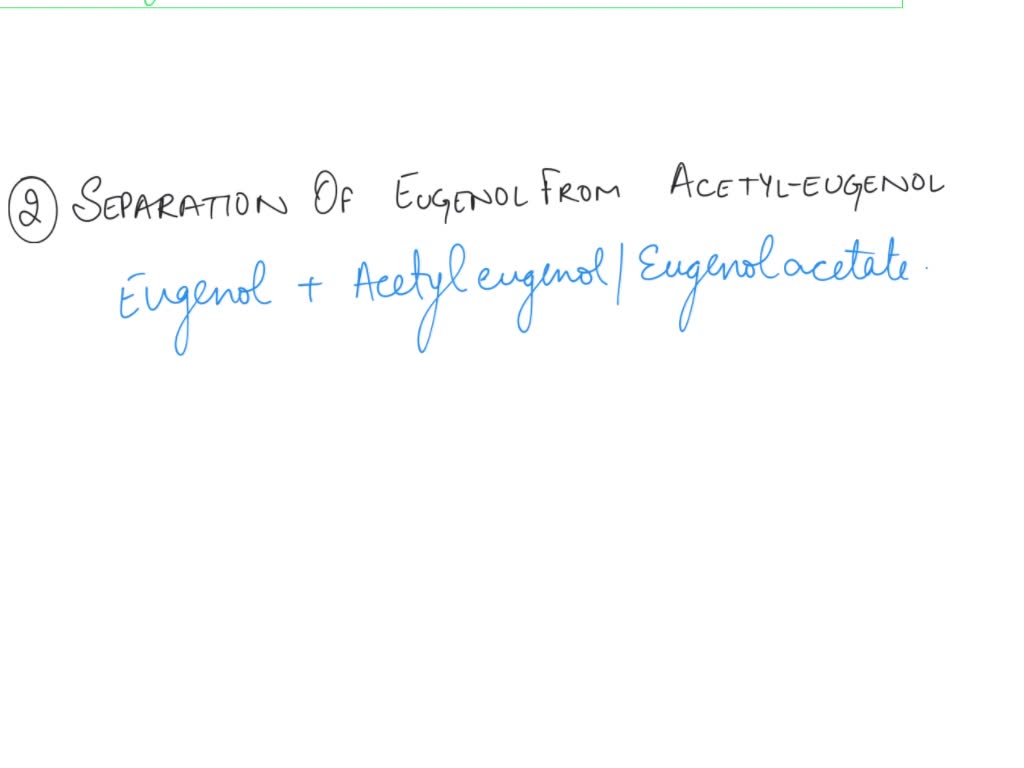 ② SEPARATION OF EUGENOL FROM ACETYL-EUGENOL
Eugenol + Acetyleugenol / Eugenol acetate.